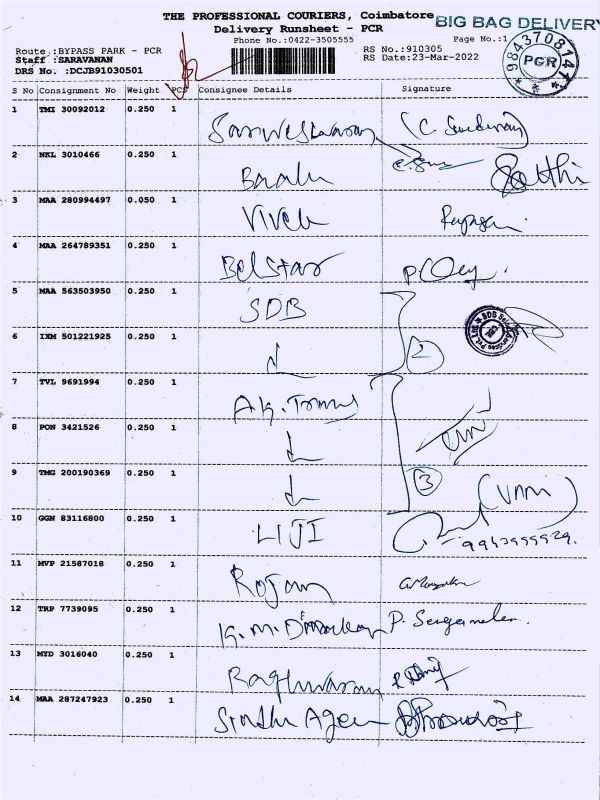 THE PROFESSIONAL COURIERS, Coimbatore
BIG BAG DELIVERY
Delivery Runsheet - PCR
Phone No.:0422-3505555 Page No.:1
Route :BYPASS PARK - PCR RS No.:910305
Staff :SARAVANAN RS Date:23-Mar-2022
DRS No. :DCJB91030501
PGR
S No Consignment No Weight PCS Consignee Details Signature
1 TMI 30092012 0.250 1
2 NKL 3010466 0.250 1 Baalu Sakthi
3 MAA 280994497 0.050 1 Vivek
4 MAA 264789351 0.250 1 Belstar
5 MAA 563503950 0.250 1 SDB
6 IXM 501221925 0.250 1 2
7 TVL 9691994 0.250 1 A.K. Trans
8 PON 3421526 0.250 1
9 TMG 200190369 0.250 1 3
10 GGN 83116800 0.250 1 LIJI
11 MVP 21587018 0.250 1 Rojan
12 TRP 7739095 0.250 1 K. M.
13 MYD 3016040 0.250 1 Raghuvaran
14 MAA 287247923 0.250 1 Sindhu Agen